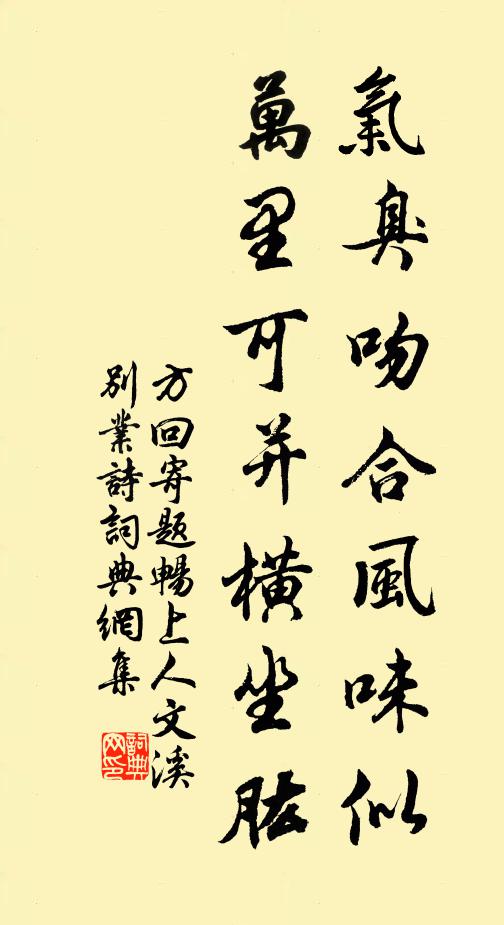 氣臭吻合風味似
萬里可并橫坐肱
方回寄題暢上人文溪
別業詩詞典網集
詞典网印